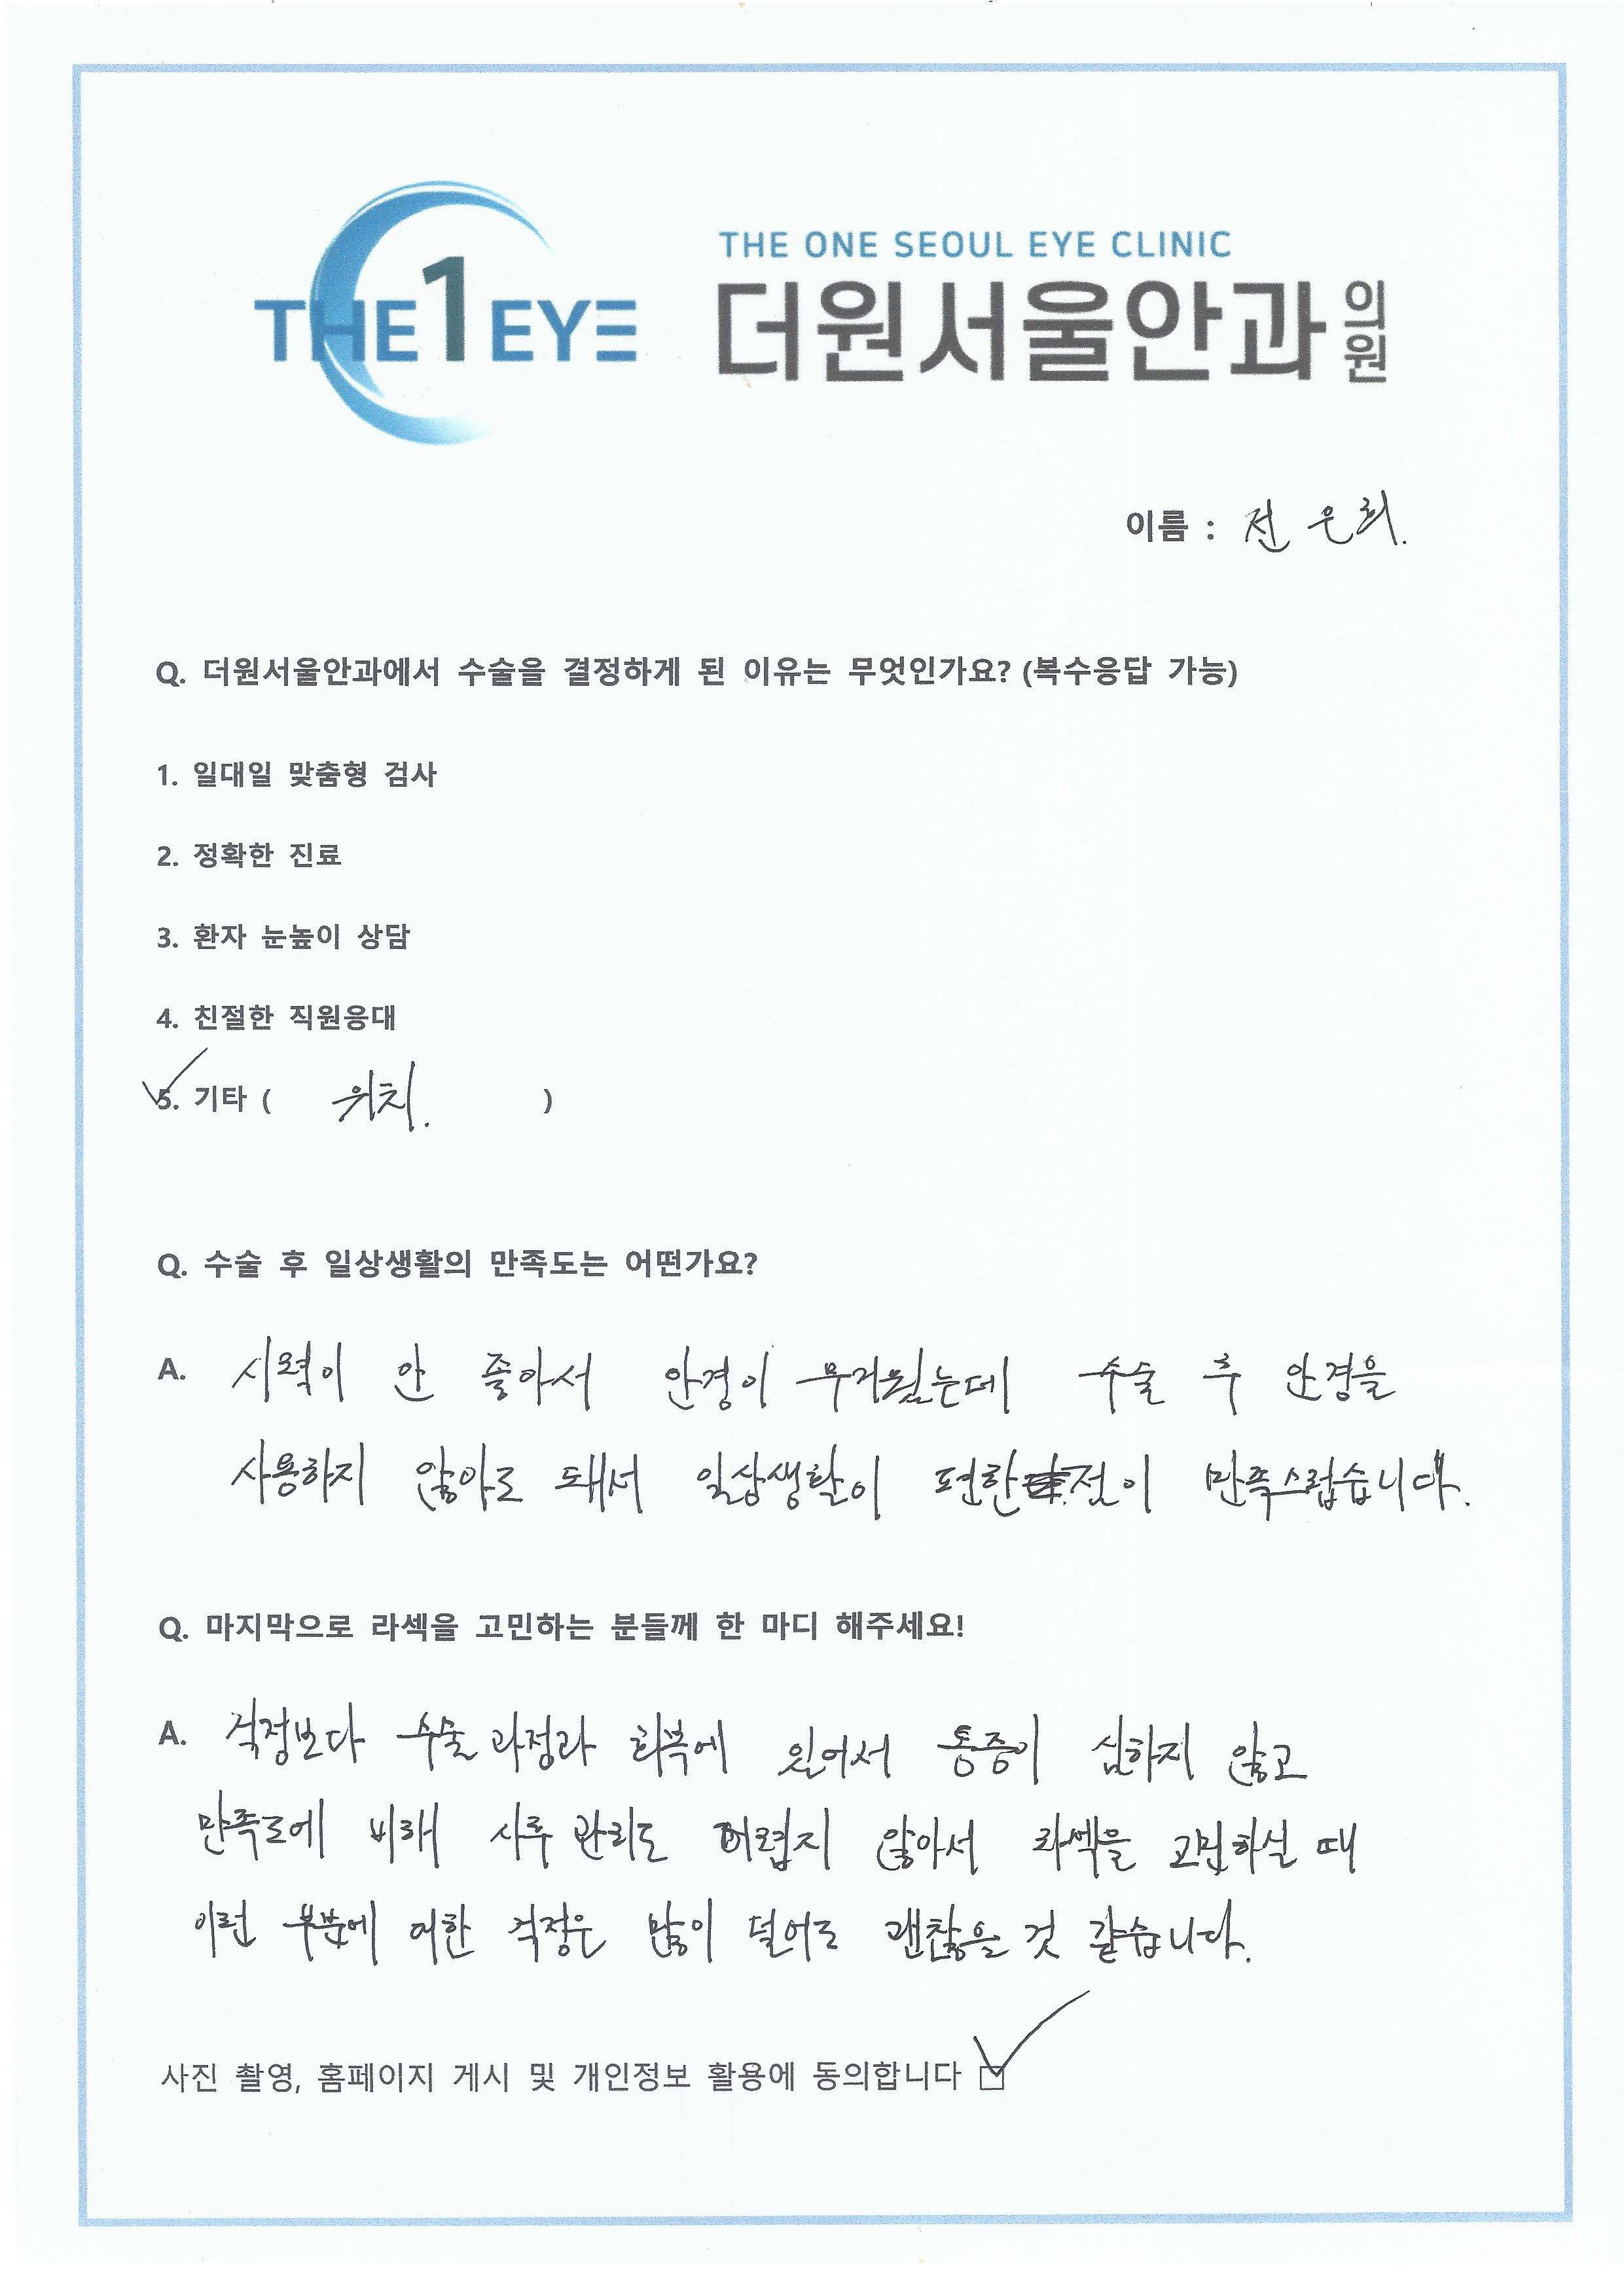 THE1EYE
THE ONE SEOUL EYE CLINIC
더원서울안과의원
이름 : 전은희.
Q. 더원서울안과에서 수술을 결정하게 된 이유는 무엇인가요? (복수응답 가능)
1. 일대일 맞춤형 검사
2. 정확한 진료
3. 환자 눈높이 상담
4. 친절한 직원응대
5. 기타 ( 위치. )
Q. 수술 후 일상생활의 만족도는 어떤가요?
A. 시력이 안 좋아서 안경이 무거웠는데 수술 후 안경을
사용하지 않아도 돼서 일상생활이 편한 점이 만족스럽습니다.
Q. 마지막으로 라섹을 고민하는 분들께 한 마디 해주세요!
A. 걱정보다 수술 과정과 회복에 있어서 통증이 심하지 않고
만족도에 비해 사후 관리도 어렵지 않아서 라섹을 고민하실 때
이런 부분에 대한 걱정은 많이 덜어도 괜찮을 것 같습니다.
사진 촬영, 홈페이지 게시 및 개인정보 활용에 동의합니다